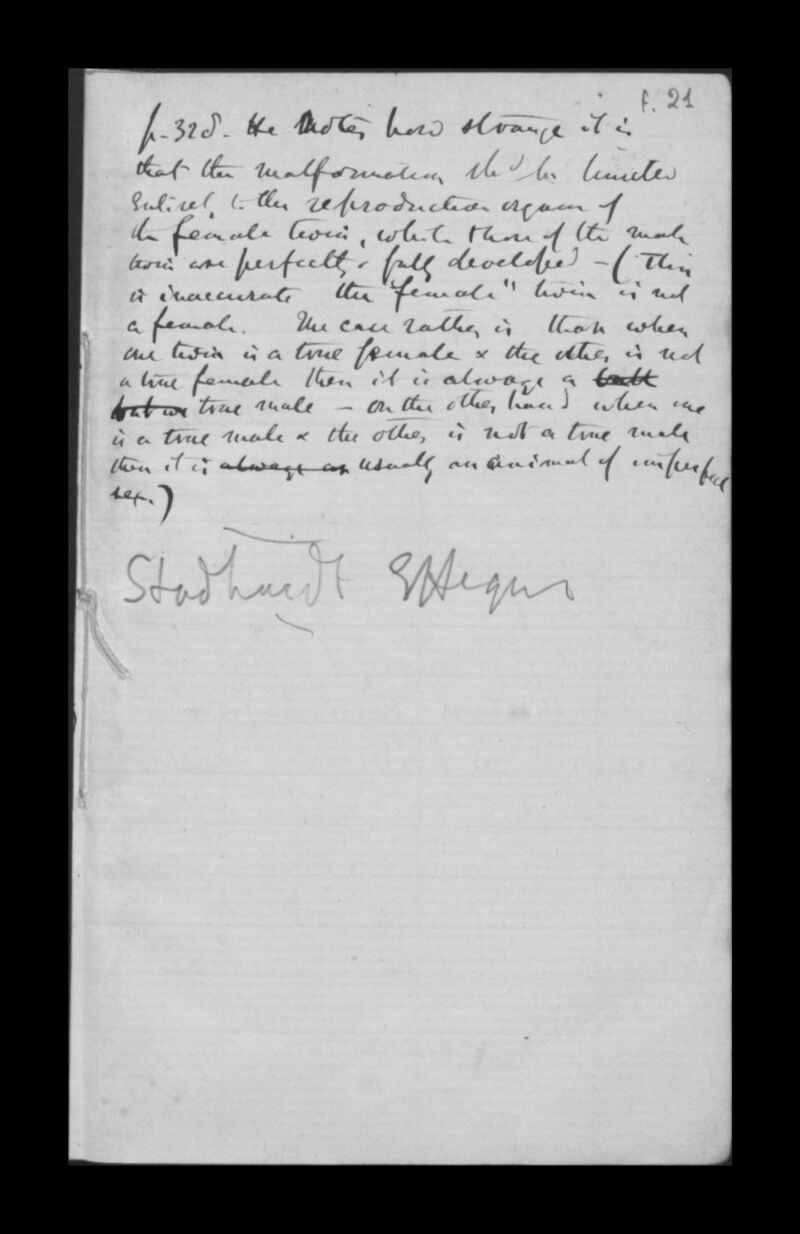 f. 21
p. 328. He notes how strange it is
that the malformation shd be limited
entirely to the reproductive organs of
the female twin, while those of the male
twin are perfectly & fully developed - (This
is inaccurate the "female" twin is not
a female. The case rather is that when
one twin is a true female & the other is not
a true female then it is always a bull
true male - on the other hand when one
is a true male & the other is not a true male
then it is always an usually an animal of imperfect
sex.)